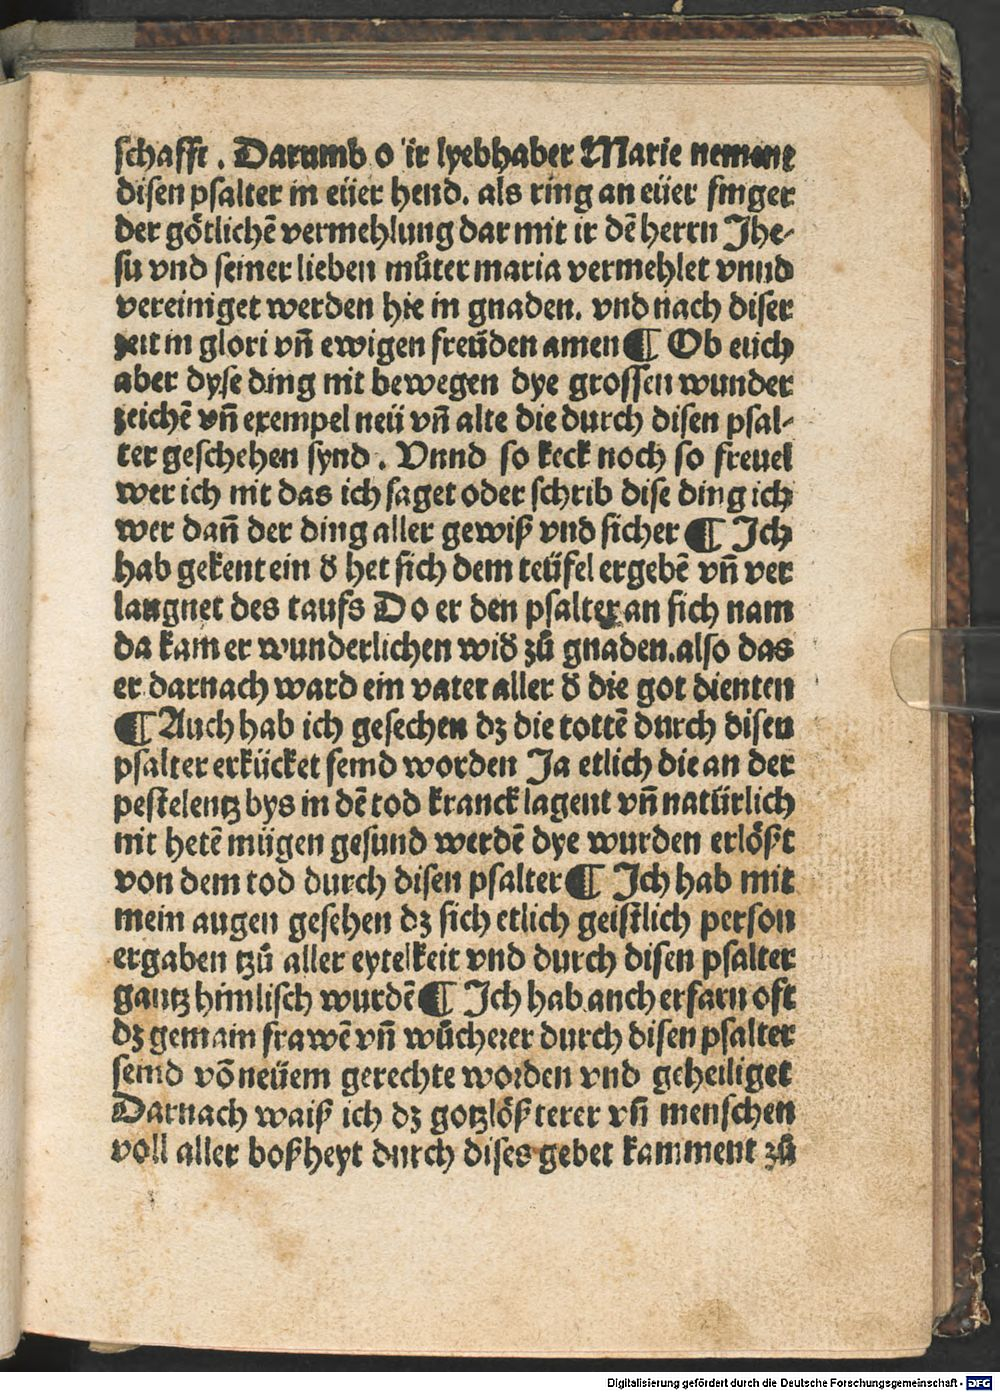 schafft . Darumb o ir lyebhaber Marie nement
disen psalter in eüer hend. als ring an eüer finger
der götlichē vermehlung dar mit ir dē herrn Jhe-
su vnd seiner lieben můter maria vermehlet vnnd
vereiniget werden hie in gnaden. vnd nach diser
zeit in glori vn̄ ewigen freüden amen ¶ Ob eüch
aber dyse ding nit bewegen dye grossen wunder
zeichē vn̄ exempel neü vn̄ alte die durch disen psal-
ter geschehen synd . Vnnd so keck noch so freuel
wer ich nit das ich saget oder schrib dise ding ich
wer dan̄ der ding aller gewiß vnd sicher ¶ Ich
hab gekent ein d̕ het sich dem teüfel ergebē vn̄ ver
laugnet des taufs Do er den psalter an sich nam
da kam er wunderlichen wid̕ zů gnaden.also das
er darnach ward ein vater aller d̕ die got dienten
¶ Auch hab ich gesechen dz die tottē durch disen
psalter erkücket semd worden Ja etlich die an der
pestelentz bys in dē tod kranck lagent vn̄ natürlich
nit hetē mügen gesund werdē dye wurden erlößt
von dem tod durch disen psalter ¶ Ich hab mit
mein augen gesehen dz sich etlich geistlich person
ergaben tzů aller eytelkeit vnd durch disen psalter
gantz himlisch wurdē ¶ Ich hab auch erfarn oft
dz gemain frawē vn̄ wůcherer durch disen psalter
semd vō neüem gerechte worden vnd geheiliget
Darnach waiß ich dz gotzlößterer vn̄ menschen
voll aller boßheyt durch dises gebet kamment zů
Digitalisierung gefördert durch die Deutsche Forschungsgemeinschaft - DFG